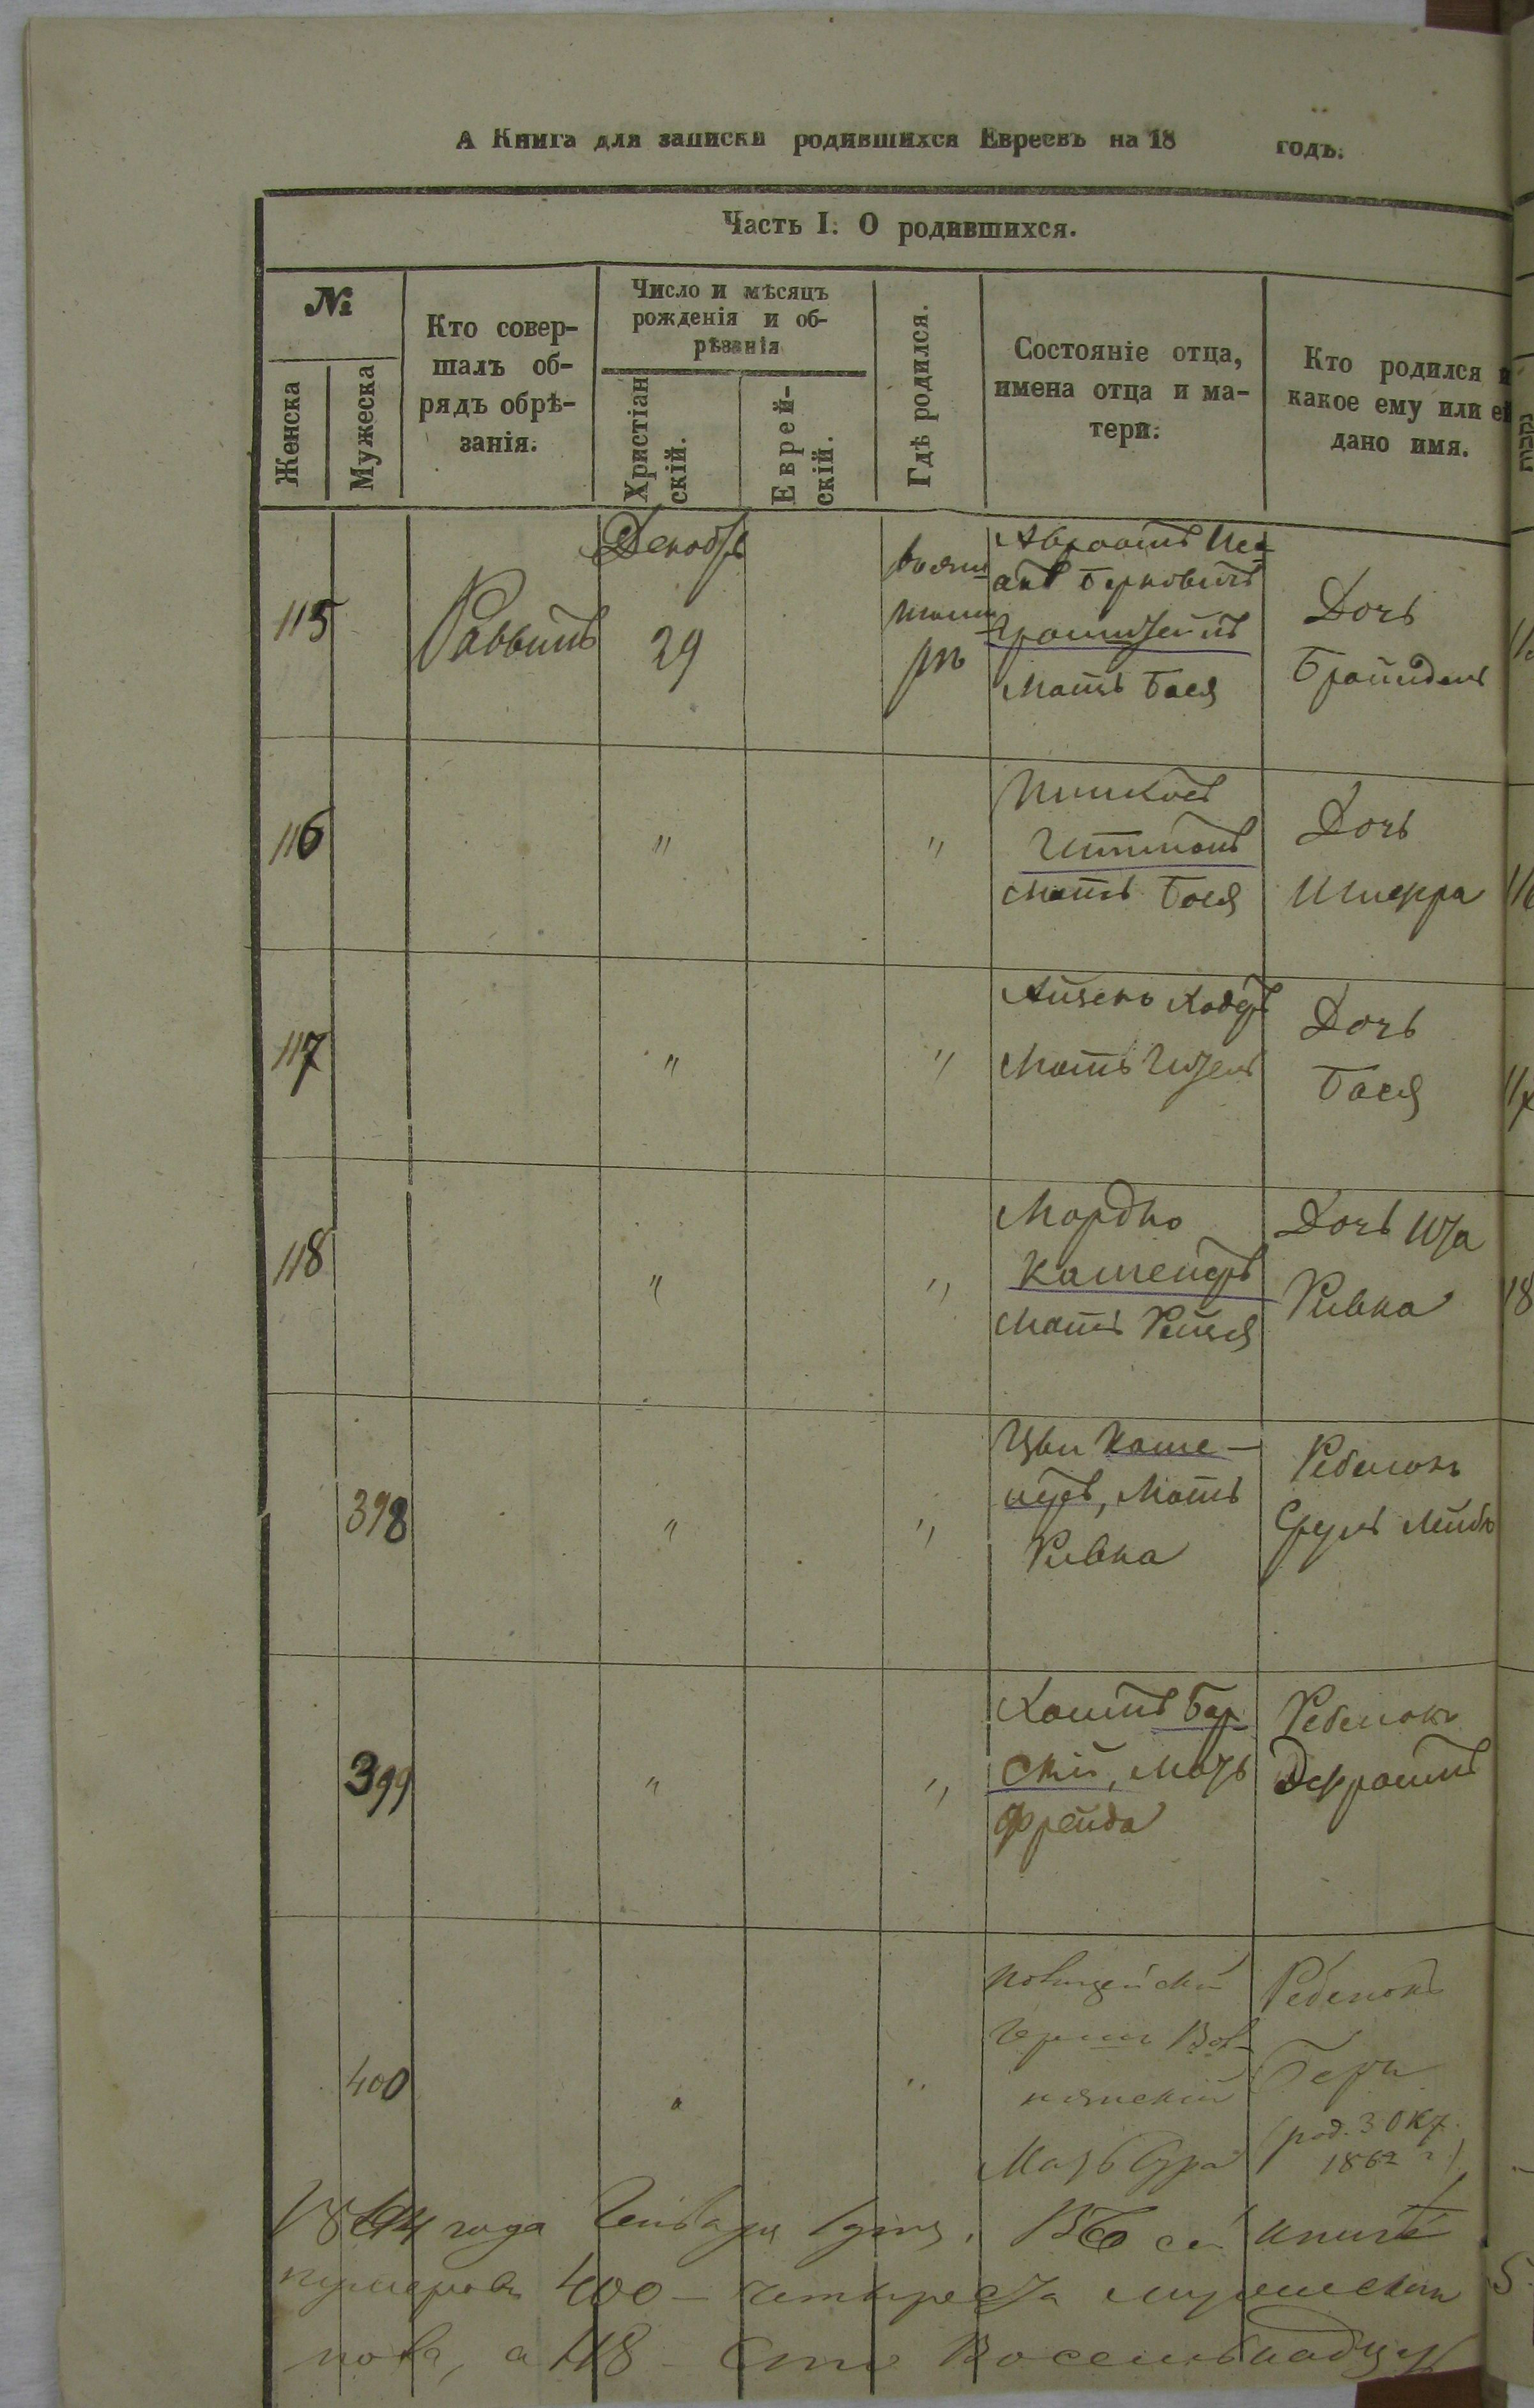 А Книга для записки родившихся Евреевъ на 18 годъ.
Часть I. О родившихся.
№
Женска
Мужеска
Кто совер-
шалъ об-
рядъ обрѣ-
занія.
Число и мѣсяцъ
рожденія и об-
рѣзанія
Христіан
скій.
Еврей-
скій.
Гдѣ родился.
Состояніе отца,
имена отца и ма-
тери.
Кто родился и
какое ему или ей
дано имя.
115
Раввинъ
Декабр
29
Авраамъ Иса
акъ Берковичъ
Мать Бася
Дочь
Брайндель
116
"
"
Гитманъ
Мать Бася
Дочь
Шифра
117
"
"
Мать
Дочь
Бася
118
"
"
Мордко
Каменеръ
Мать Рейзя
Дочь
Ривка
398
"
"
Цви Каме-
неръ, Мать
Ривка
Ребенокъ
Сруль Лейбъ
399
"
"
Хаимъ Бар
скій, Мать
Фрейда
Ребенокъ
Эфраимъ
400
"
"
Полицейскій
Мать Сура
Ребенокъ
Беръ
(род. 3 Окт.
1862 г.)
года Января 1 дня. Въ сей книгѣ
нумеровъ 400 - четыреста мужескаго
пола, а 118 - Сто Восемьнадцать